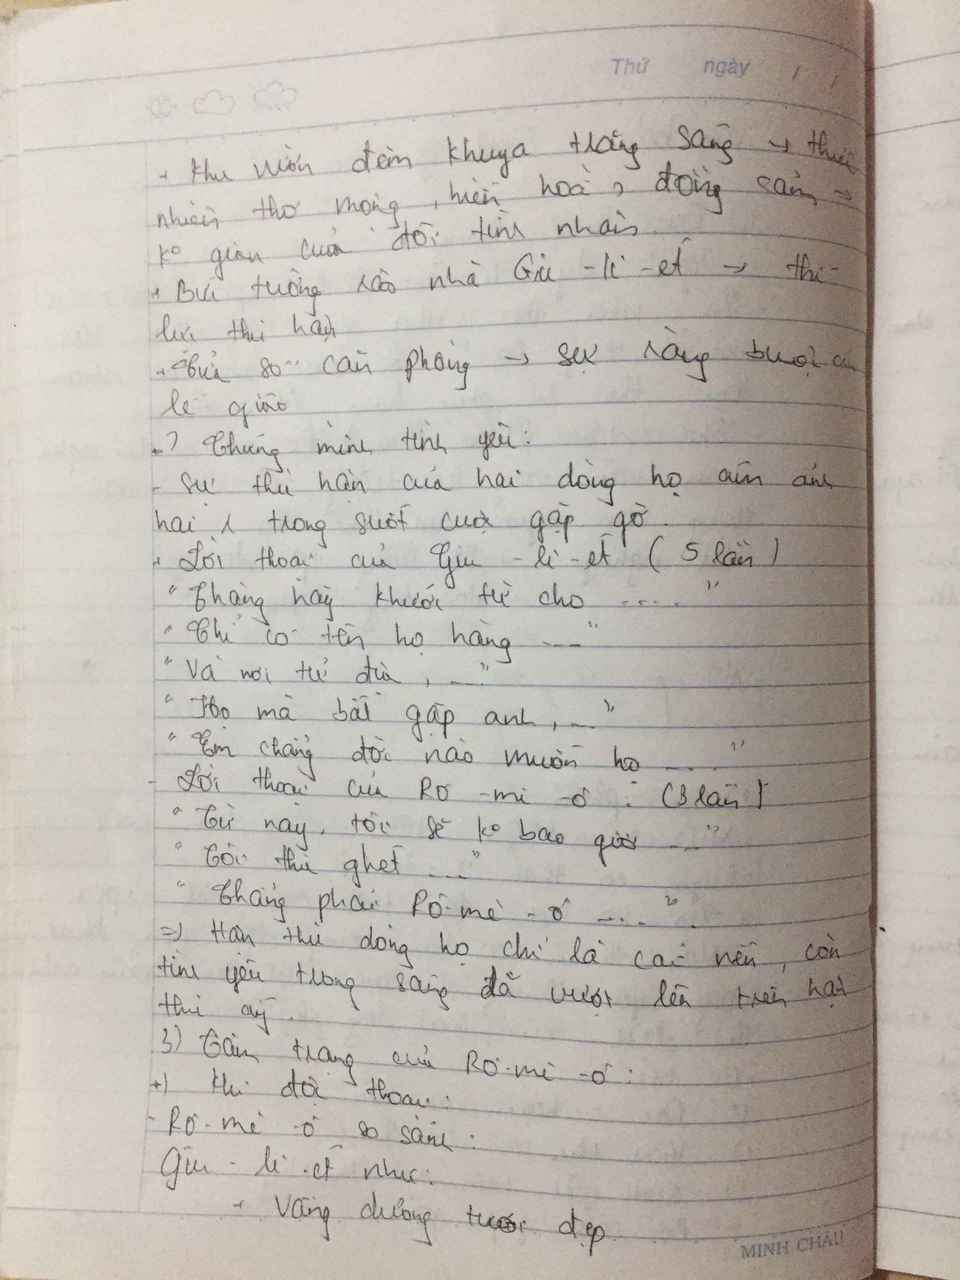 Thứ ngày / /
+ Khu vườn đêm khuya trăng sáng → thiên
nhiên thơ mộng, hiền hoà, đồng cảm →
ko gian của đôi tình nhân.
+ Bức tường rào nhà Giu-li-ét → thù
hận
+ Cửa sổ căn phòng → sự ràng buộc
lễ giáo
) Chứng minh tình yêu:
- Sự thù hận của hai dòng họ ám ảnh
hai λ trong suốt cuộc gặp gỡ.
+ Lời thoại của Giu-li-ét (5 lần)
"Chàng hãy khước từ cho ....."
"Chỉ có tên họ hàng ...."
"Và nơi tử địa, ...."
"Họ mà bắt gặp anh, ..."
"Em chẳng đời nào muốn họ ...."
- Lời thoại của Rô-mê-ô: (3 lần)
"Từ nay, tôi sẽ ko bao giờ ...."
"Tôi thù ghét ...."
"Chẳng phải Rô-mê-ô ....".
=> Hận thù dòng họ chỉ là cái nền, còn
tình yêu trong sáng đã vượt lên trên hận
thù ấy.
3) Tâm trạng của Rô-mê-ô:
+) Khi đối thoại:
- Rô-mê-ô so sánh:
Giu-li-ét như:
+ Vầng dương tươi đẹp
MINH CHÂU